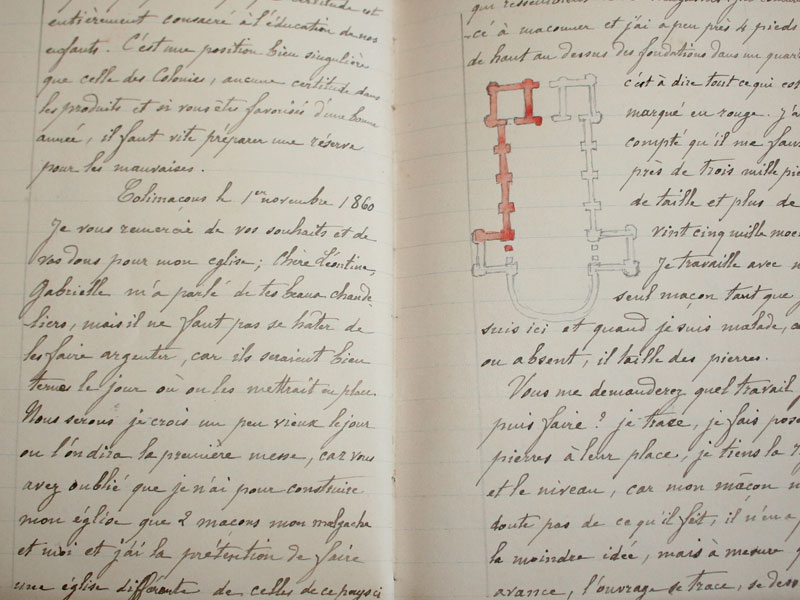 certitude est
entièrement consacré à l'éducation de nos
enfants. C'est une position bien singulière
que celle des Colonies, aucune certitude dans
les produits et si vous êtes favorisés d'une bonne
année, il faut vite préparer une réserve
pour les mauvaises.
Colimaçons le 1er novembre 1860
Je vous remercie de vos souhaits et de
vos dons pour mon eglise; Chère Léontine,
Gabrielle m'a parlé de tes beaux chande-
liers, mais il ne faut pas se hâter de
les faire argenter, car ils seraient bien
ternes le jour où on les mettrait en place.
Nous serons je crois un peu vieux le jour
ou l'on dira la première messe, car vous
avez oublié que je n'ai pour construire
mon église que 2 maçons mon malgache
et moi et j'ai la prétention de faire
une église différente de celles de ce pays ci
-cé à maconner et j'ai a peu près 4 pieds
de haut au dessus des fondations dans une
c'est à dire tout ce qui est
marqué en rouge. J'ai
compté qu'il me
près de trois mille
de taille et plus de
vint cinq mille
Je travaille avec
seul maçon tant que
suis ici et quand je suis malade,
ou absent, il taille des pierres.
Vous me demanderez quel travail
puis faire? je trace, je fais
pierres à leur place, je tiens la
et le niveau, car mon mâcon
doute pas de ce qu'il fait, il n'en a
la moindre idée, mais à mesure
avance, l'ouvrage se trace,